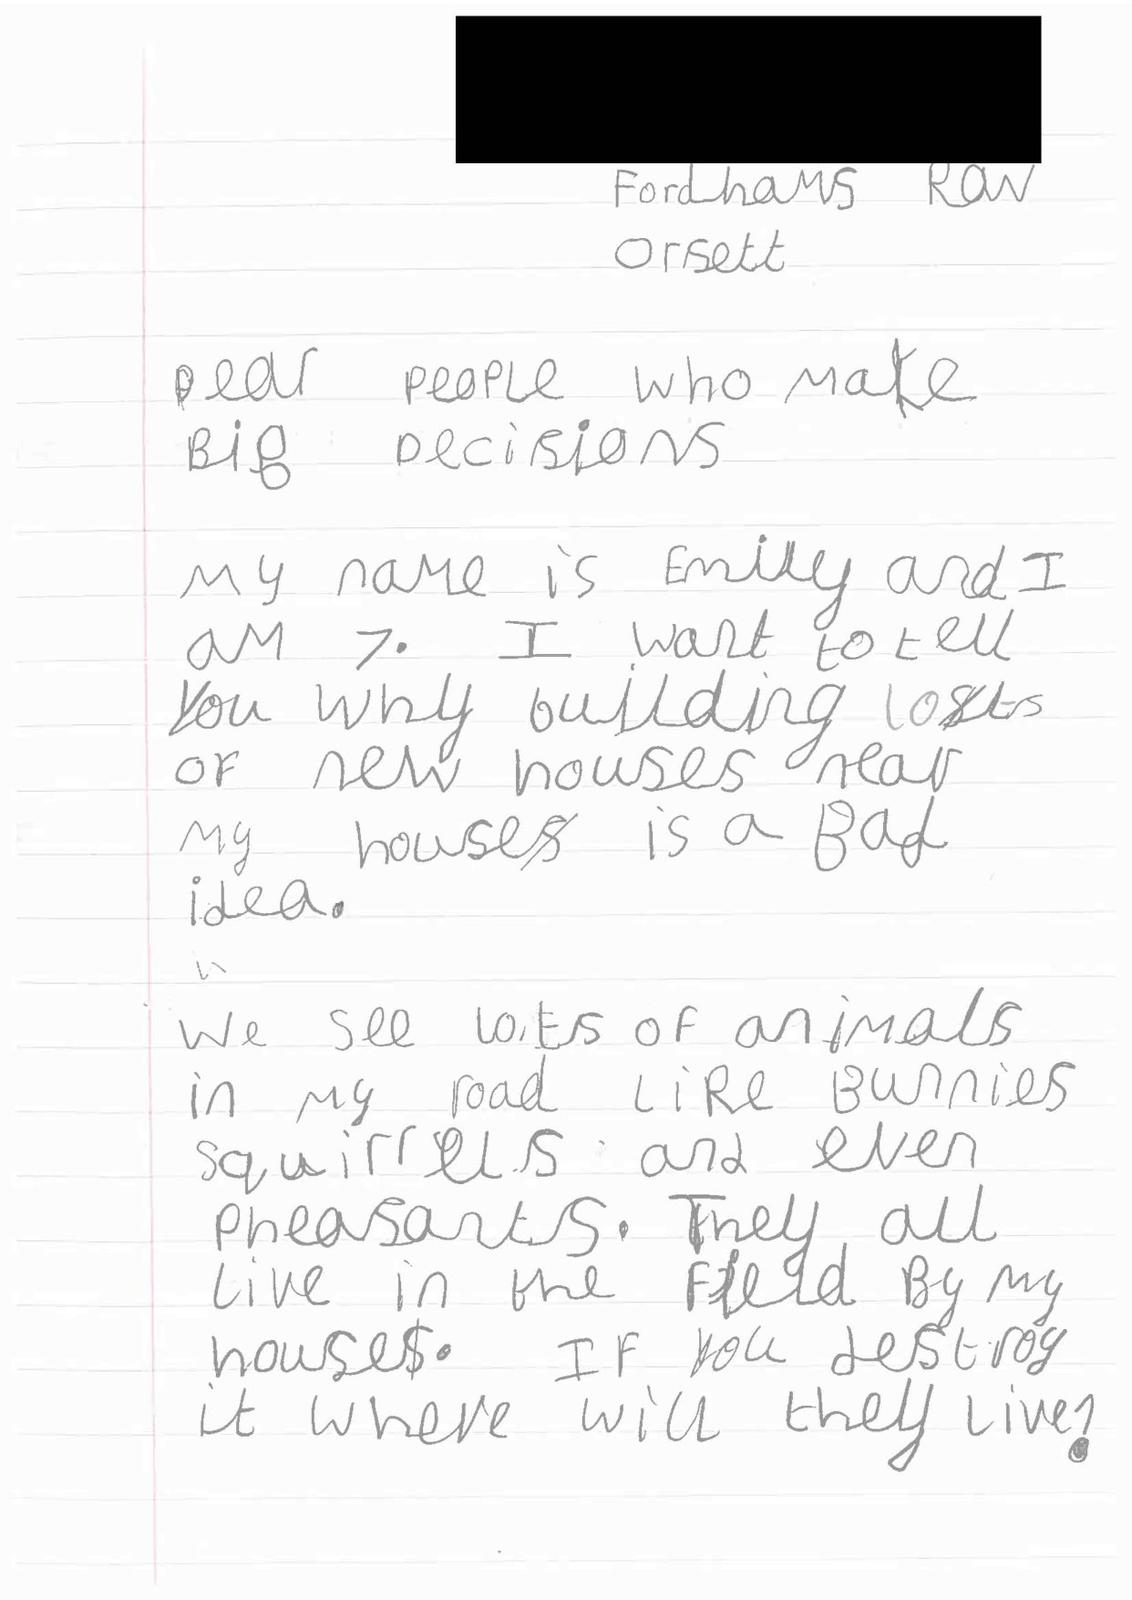 Fordhams Row
Orsett
Dear people who make
Big Decisions
My name is Emily and I
am 7. I want to tell
you why building lots
of new houses near
my house is a Bad
idea.
We see lots of animals
in my road like Bunnies
squirrels and even
pheasants. They all
live in the Field By my
house. If you destroy
it where will they live?